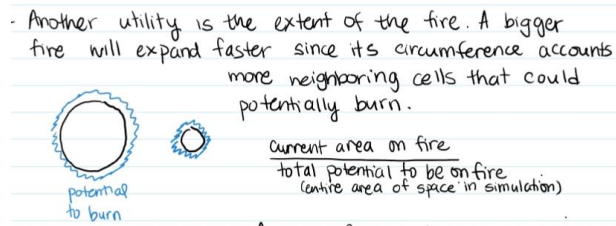 - Another utility is the extent of the fire. A bigger
fire will expand faster since its circumference accounts
more neighboring cells that could
potentially burn.
current area on fire
total potential to be on fire
(entire area of space in simulation)
potential
to burn